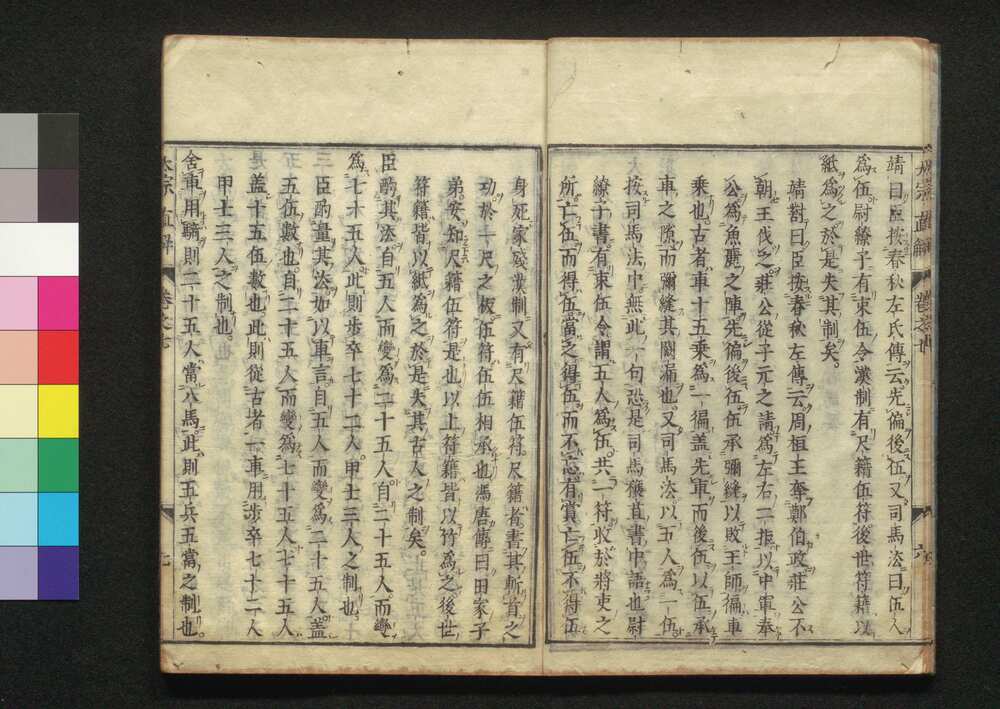 靖曰臣按春秋左氏傳云先偏後伍又司馬法曰伍人
為伍尉繚子有束伍令漢制有尺籍伍符後世符籍以
紙為之於是失其制矣
靖對曰臣按春秋左傳云周桓王奪鄭伯政莊公不
朝王伐之莊公從子元之請為左右二拒以中軍奉
公為魚麗之陣先偏後伍伍承彌縫以敗王師偏車
乘也古者車十五乘為一偏盖先車而後伍以伍承
車之隙而彌縫其闕漏也又司馬法以五人為一伍
按司馬法中無此一句恐是司馬穰苴書中語也尉
繚子書有束伍令謂五人為伍共一符收於將吏之
所亡伍而得伍當之得伍而不亡有賞亡伍不得伍
身死家殘漢制又有尺籍伍符尺籍者書其斬首之
功於一尺之板伍符伍伍相承也馮唐傳曰田家子
弟安知尺籍伍符是也以上符籍皆以竹為之後世
符籍皆以紙為之於是失其古人之制矣
臣酌其法自五人而變為二十五人自二十五人而變
為七十五人此則步卒七十二人甲士三人之制也
臣酌量其法如以車言自五人而變為二十五人盖
五伍數也自二十五人而變為七十五人七十五人
盖十五伍數也此則從古者一車用步卒七十二人
甲士三人之制也
舍車用騎則二十五人當八馬此則五兵五當之制也
直解
七